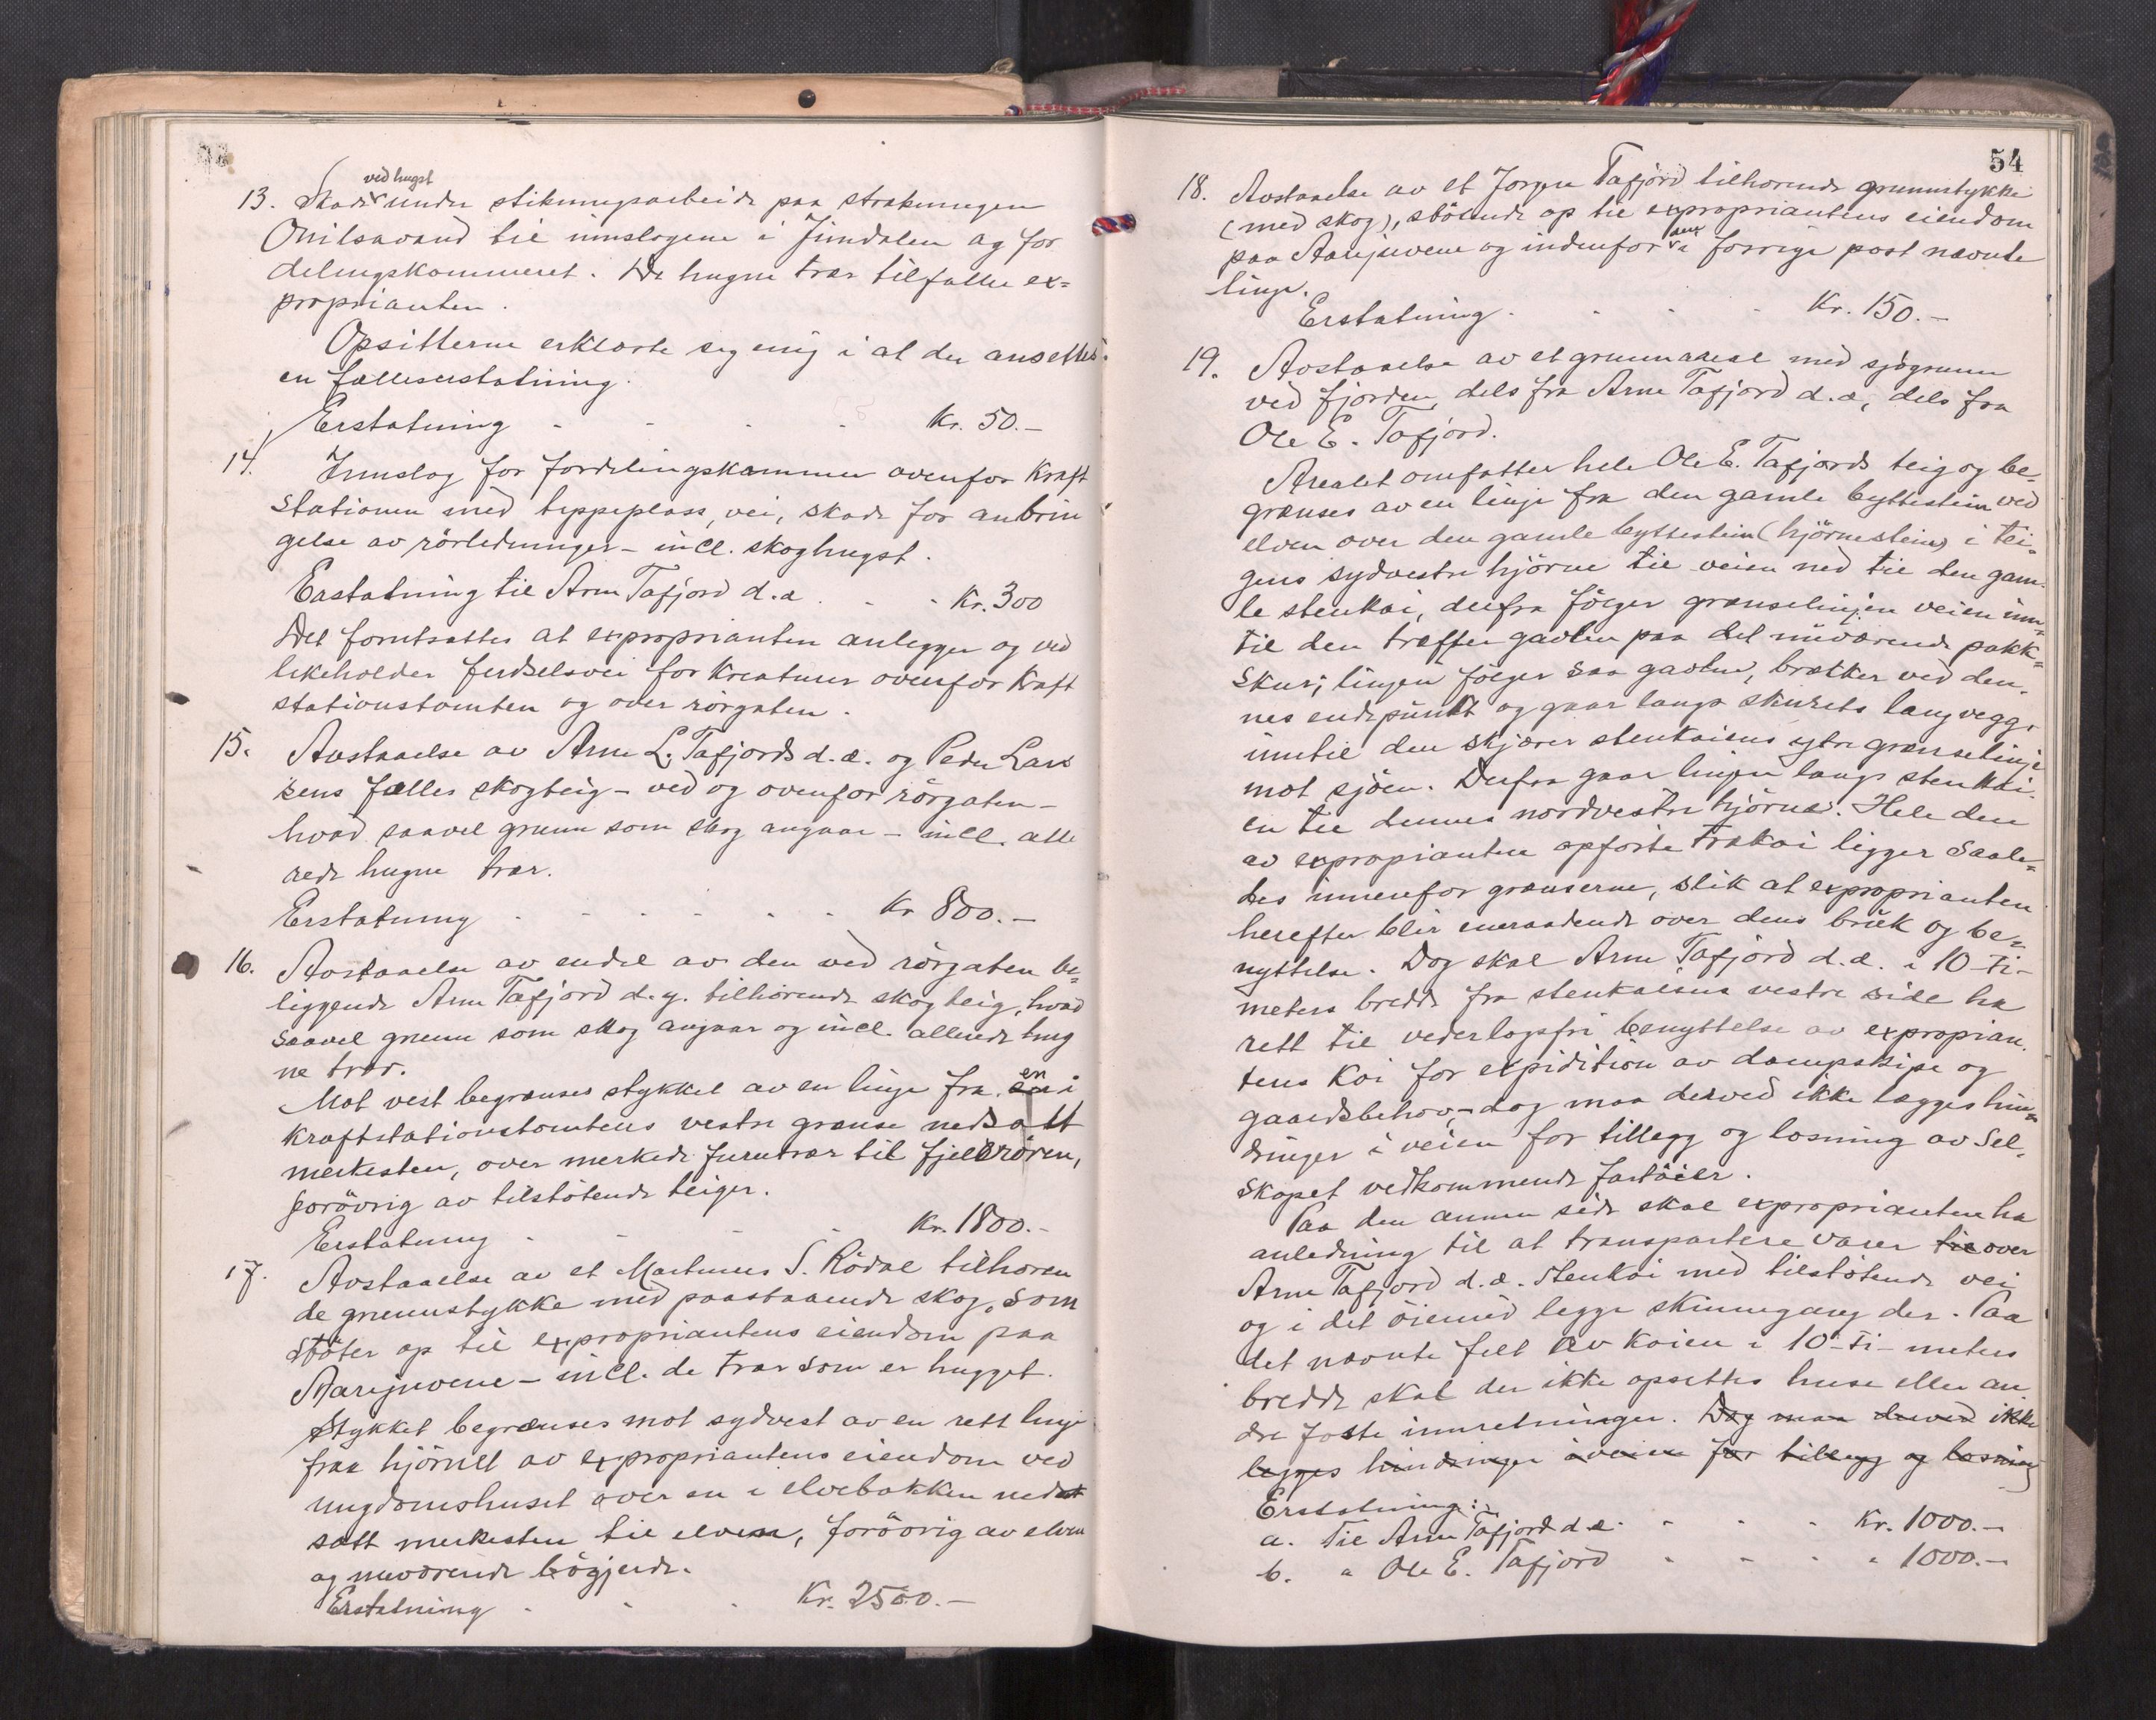 ved hugst
13. Skade under stikningsarbeide paa strekningen
Onilsavand til innslagene i Jimdalen og for
delingskammeret. De hugne trær tilfaller ex=
proprianten.
Opsitterne erklærte seg enig i at der ansettes
en fælleserstatning.
Erstatning - - - - Kr. 50.-
14. Innslag for fordelingskammer ovenfor Kraft
stationen med tippeplass, vei, skade for anbrin
gelse av rörledninger - incl. skoghugst.
Erstatning til Arne Tafjord d.æ. - - Kr. 300
Det forutsættes at exproprianten anlegger og ved
likeholder ferdselsvei for kreaturer ovenfor Kraft
stationstomten og over rörgaten.
15. Avstaaelse av Arne L. Tafjords d.æ. og Peder Lars
sens fælles skogteig - ved og ovenfor rörgaten -
hvad saavel grunn som skog angaar - incl. alle
rede hugne trær.
Erstatning - - - - - - Kr 800.-
16. Avstaaelse av endel av den ved rörgaten be=
liggende Arne Tafjord d.y. tilhörende skogteig, hvad
saavel grunn som skog angaar og incl. allerede hug
ne trær.
Mot vest begrænses stykket av en linje fra en i
Kraftstationstomtens vestre grænse nedsatt
merkesten, over merkede furutrær til fjellrören,
forövrig av tilstötende teiger.
Erstatning - - - - Kr. 1800.-
17. Avstaaelse av et Martinus S. Rödal tilhören
de grunnstykke med paastaaende skog, som
stöter op til expropriantens eiendom paa
Aarejuvene - incl. de trær som er hugget.
Stykket begrænses mot sydvest av en rett linje
fraa hjörnet av expropriantens eiendom ved
ungdomshuset over en i elvebakken ned
satt merkesten til elven, forövrig av elven
og nuværende bögjerde.
Erstatning - - - Kr. 2500.-
54
18. Avstaaelse av et Jörgen Tafjord tilhörende grunnstykke
(med skog), stötende op til expropriantens eiendom
paa Aarejuvene og indenfor den i forrige post nævnte
linje.
Erstatning - - - - Kr. 150.-
19. Avstaaelse av et grunnareal med sjögrunn
ved fjorden, dels fra Arne Tafjord d.æ, dels fra
Ole E. Tafjord.
Arealet omfatter hele Ole E. Tafjords teig og be=
grænses av en linje fra den gamle byttestein ved
elven over den gamle byttestein (hjörnestein) i tei=
gens sydvestre hjörne til veien ned til den gam
le stenkai, derfra fölger grænselinjen veien inn=
til den træffer gavlen paa det nuværende pakk=
skur; linjen fölger saa gavlen, brækker ved den=
nes endepunkt og gaar langs skurets langvegg,
inntil den skjærer stenkaiens ytre grænselinje
mot sjöen. Derfra gaar linjen langs stenkai=
en til dennes nordvestre hjörne. Hele den
av expropianten opförte trækai ligger saale=
des innenfor grænserne, slik at exproprianten
herefter blir eneraadende over dens bruk og be=
nyttelse. Dog skal Arne Tafjord d.æ. i 10-ti-
meters bredde fra stenkaiens vestre side ha
rett til vederlagsfri benyttelse av expropian=
tens kai for expidition av dampskipe og
gaardsbehov, - dog maa derved ikke lægges hin=
dringer i veien for tillegg og losning av Sel=
skapet vedkommende fartöier.
Paa den annen side skal exproprianten ha
anledning til at transportere varer til over
Arne Tafjord d.æ. stenkai med tilstötende vei
og i det öiemed legge skinnegang der. Paa
det nævnte felt av kaien i 10-ti-meters
bredde skal der ikke opsettes huse eller an
dre faste innretninger. Dog maa derved ikke
legges hindringer i veien for tillegg og losning
Erstatning:
a. Til Arne Tafjord d.æ. - - - Kr. 1000.-
b. " Ole E. Tafjord - - - - " 1000.-